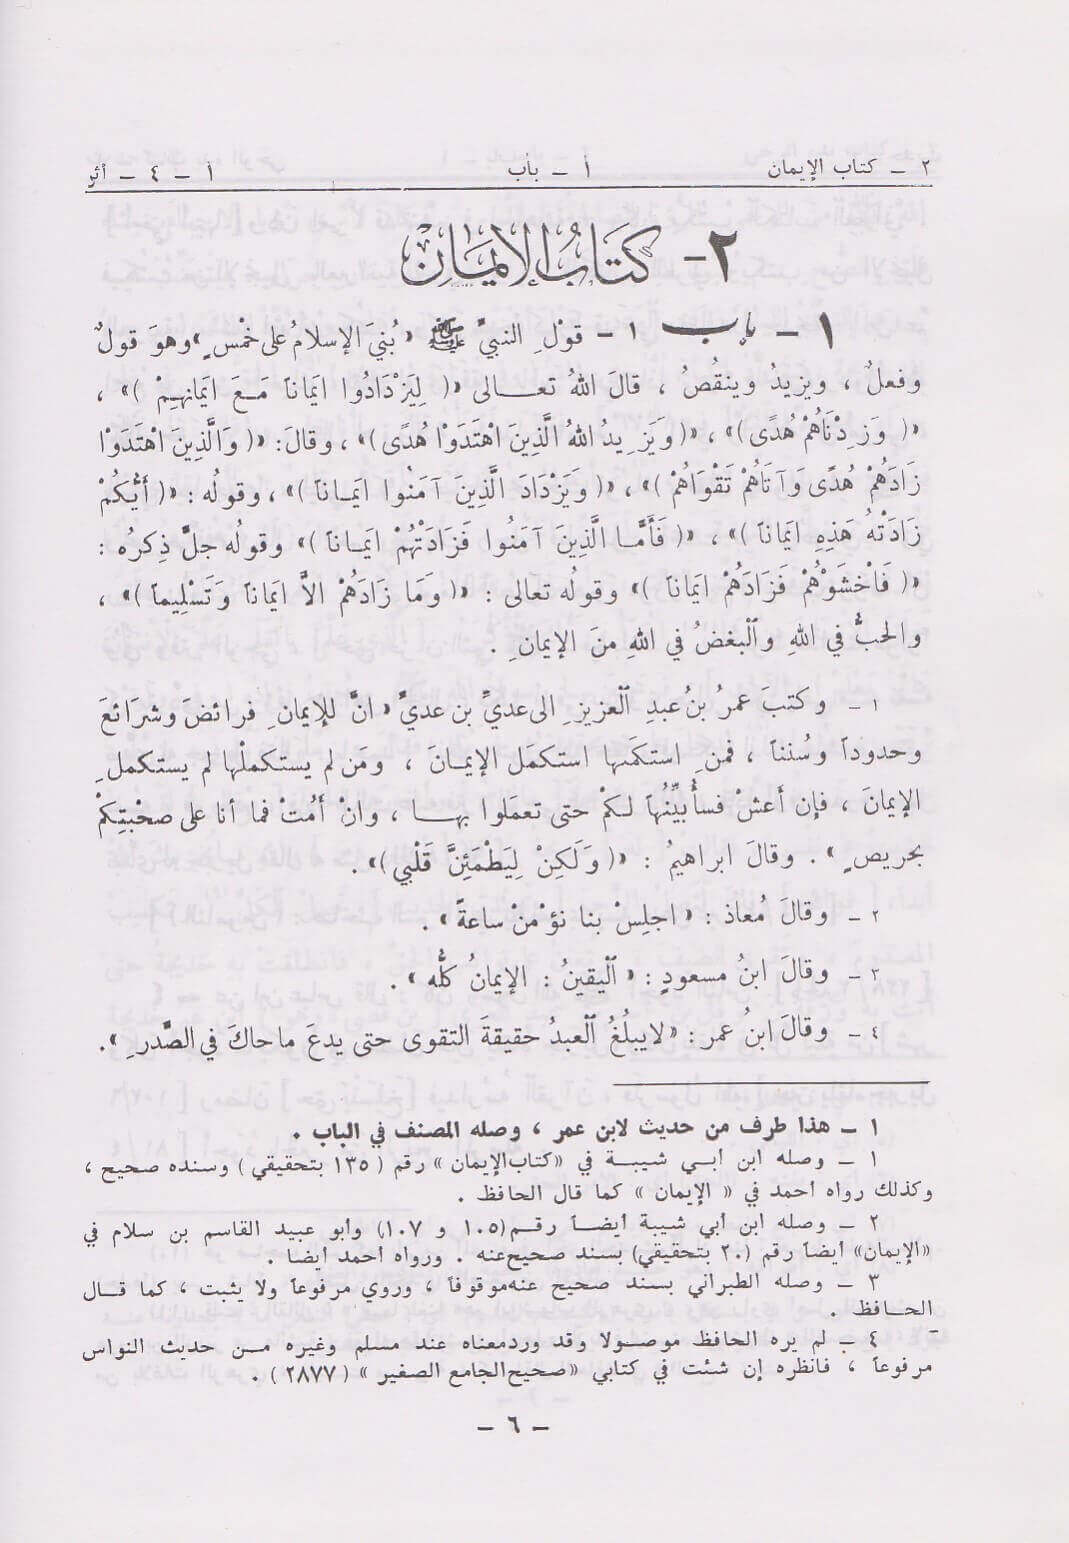 ٢ ـ كتاب الإيمان أ ـ باب أ ـ ٤ ـ أثر
٢- كتَابُ الإيمَان
١ - باب ١ - قوْلِ النبيِّ ﷺ « بُنيَ الإسلامُ على خَمْسٍ » وهوَ قولٌ
وفعلٌ ، ويزيدُ وينقُصُ ، قالَ اللهُ تعـالى «( لِيَزْدَادُوا ايمَاناً مَعَ ايمَانهِمْ )» ،
«( وَزِدْنَاهُمْ هُدًى )» ، «( وَيَزِيدُ اللهُ الَّذِينَ اهْتَدَوْا هُدًى )» ، وقالَ: «( وَالَّذِينَ اهْتَدَوْا
زَادَهُمْ هُدًى وَآتَاهُمْ تَقْوَاهُمْ )» ، «( وَيَزْدَادَ الَّذِينَ آمَنُوا ايمَـاناً )» ، وقولُه : «( أَيُّكُمْ
زَادَتْهُ هَذِهِ ايمَاناً )» ، «( فَأَمَّـا الَّذِينَ آمَنُوا فَزَادَتْهُمْ ايمَـاناً )» وقولُه جلَّ ذِكرُه :
«( فَاخْشَوْهُمْ فَزَادَهُمْ ايمَاناً )» وقولُه تعالى : «( وَمَا زَادَهُمْ الاَّ ايمَاناً وَتَسْلِيماً )» ،
والحبُّ في اللهِ والْبغضُ في اللهِ منَ الإيمانِ .
١ - وكتبَ عمرُ بنُ عبدِ الْعزيزِ الى عديِّ بن عديٍّ « انَّ للإيمانِ فرائضَ وشرَائعَ
وحدوداً وسُنناً ، فمنِ استكمَلها استكمَل الإيمـانَ ، ومَن لم يستكملْها لم يستكملِ
الإيمانَ ، فإن أعشْ فسأُبيِّنُها لكمْ حتى تعمَلوا بهـا ، وانْ أمُتْ فما أنا على صحْبتِكمْ
بحريصٍ » . وقالَ ابراهيمُ : «( وَلَكِنْ لِيَطْمَئِنَّ قَلْبِي )» .
٢ - وقالَ مُعاذ : « اجلِسْ بنا نؤمنْ ساعةً » .
٣ - وقالَ ابنُ مسعودٍ : « الْيقينُ : الإيمانُ كلُّه » .
٤ - وقالَ ابنُ عمر : « لايبلُغُ الْعبدُ حقيقةَ التقوى حتى يدعَ ما حاكَ في الصَّدرِ ».
١ ـ هذا طرف من حديث لابن عمر ، وصله المصنف في الباب .
١ ـ وصله ابن أبـي شيبـة في «كتاب الإيمان » رقم ( ١٣٥ بتحقيقي ) وسنده صحيح ،
وكذلك رواه احمد في « الإيمان » كما قال الحافظ .
٢ ـ وصله ابن أبي شيبة أيضـاً رقـم (١٠٥ و ١٠٧) وأبو عبيد القاسم بن سلام في
«الإيمان» أيضاً رقم (٢٠ بتحقيقي) بسند صحيح عنه . ورواه احمد أيضا .
٣ ـ وصله الطبراني بسند صحيح عنه موقوفاً ، وروي مرفوعاً ولا يثبت ، كما قـال
الحـافظ .
٤ ـ لم يره الحافظ موصـولا وقد ورد معناه عند مسلم وغيره مـن حديث النواس
مرفوعاً ، فانظره إن شئت في كتابي «صحيح الجامع الصغير » (٢٨٧٧) .
ـ ٦ ـ